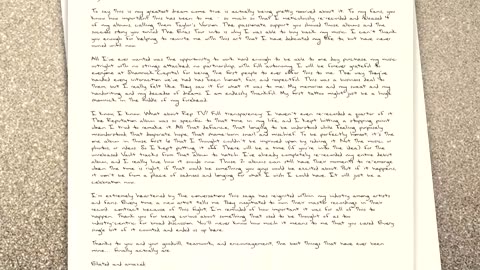 To say this is my greatest dream come true is actually being pretty reserved about it. To my fans, you
know how important this has been to me - so much so that I meticulously re-recorded and released 4
of my albums calling them Taylor's Version. The passionate support you showed those albums and the
success story you turned The Eras Tour into is why I was able to buy back my music. I can't thank
you enough for helping to reunite me with this art that I have dedicated my life to but have never
owned until now.
All I've ever wanted was the opportunity to work hard enough to be able to one day purchase my music
outright with no strings attached, no partnership, with full autonomy. I will be forever grateful to
everyone at Shamrock Capital for being the first people to ever offer this to me. The way they've
handled every interaction we've had has been honest, fair, and respectful. This was a business deal to
them but I really felt like they saw it for what it was to me: My memories and my sweat and my
handwriting and my decades of dreams. I am endlessly thankful. My first tattoo might just be a huge
shamrock in the middle of my forehead.
I know, I know. What about Rep TV? Full transparency: I haven't even re-recorded a quarter of it.
The Reputation album was so specific to that time in my life, and I kept hitting a stopping point
when I tried to remake it. All that defiance, that longing to be understood while feeling purposely
misunderstood, that desperate hope, that shame-born snarl and mischief. To be perfectly honest, it's the
one album in those first 6 that I thought couldn't be improved upon by redoing it. Not the music, or
photos, or videos. So I kept putting it off. There will be a time (if you're into the idea) for the
unreleased Vault tracks from that album to hatch. I've already completely re-recorded my entire debut
album, and I really love how it sounds now. The 2 albums can still have their moments to re-emerge
when the time is right, if that would be something you guys would be excited about. But if it happens,
it won't be from a place of sadness and longing for what I wish I could have. It will just be a
celebration now.
I'm extremely heartened by the conversations this saga has reignited within my industry among artists
and fans. Every time a new artist tells me they negotiated to own their master recordings in their
record contract because of this fight, I'm reminded of how important it was for all of this to
happen. Thank you for being curious about something that used to be thought of as too
industry-centric for broad discussion. You'll never know how much it means to me that you cared. Every
single bit of it counted and ended us up here.
Thanks to you and your goodwill, teamwork, and encouragement, the best things that have ever been
mine... finally actually are.
Elated and amazed,